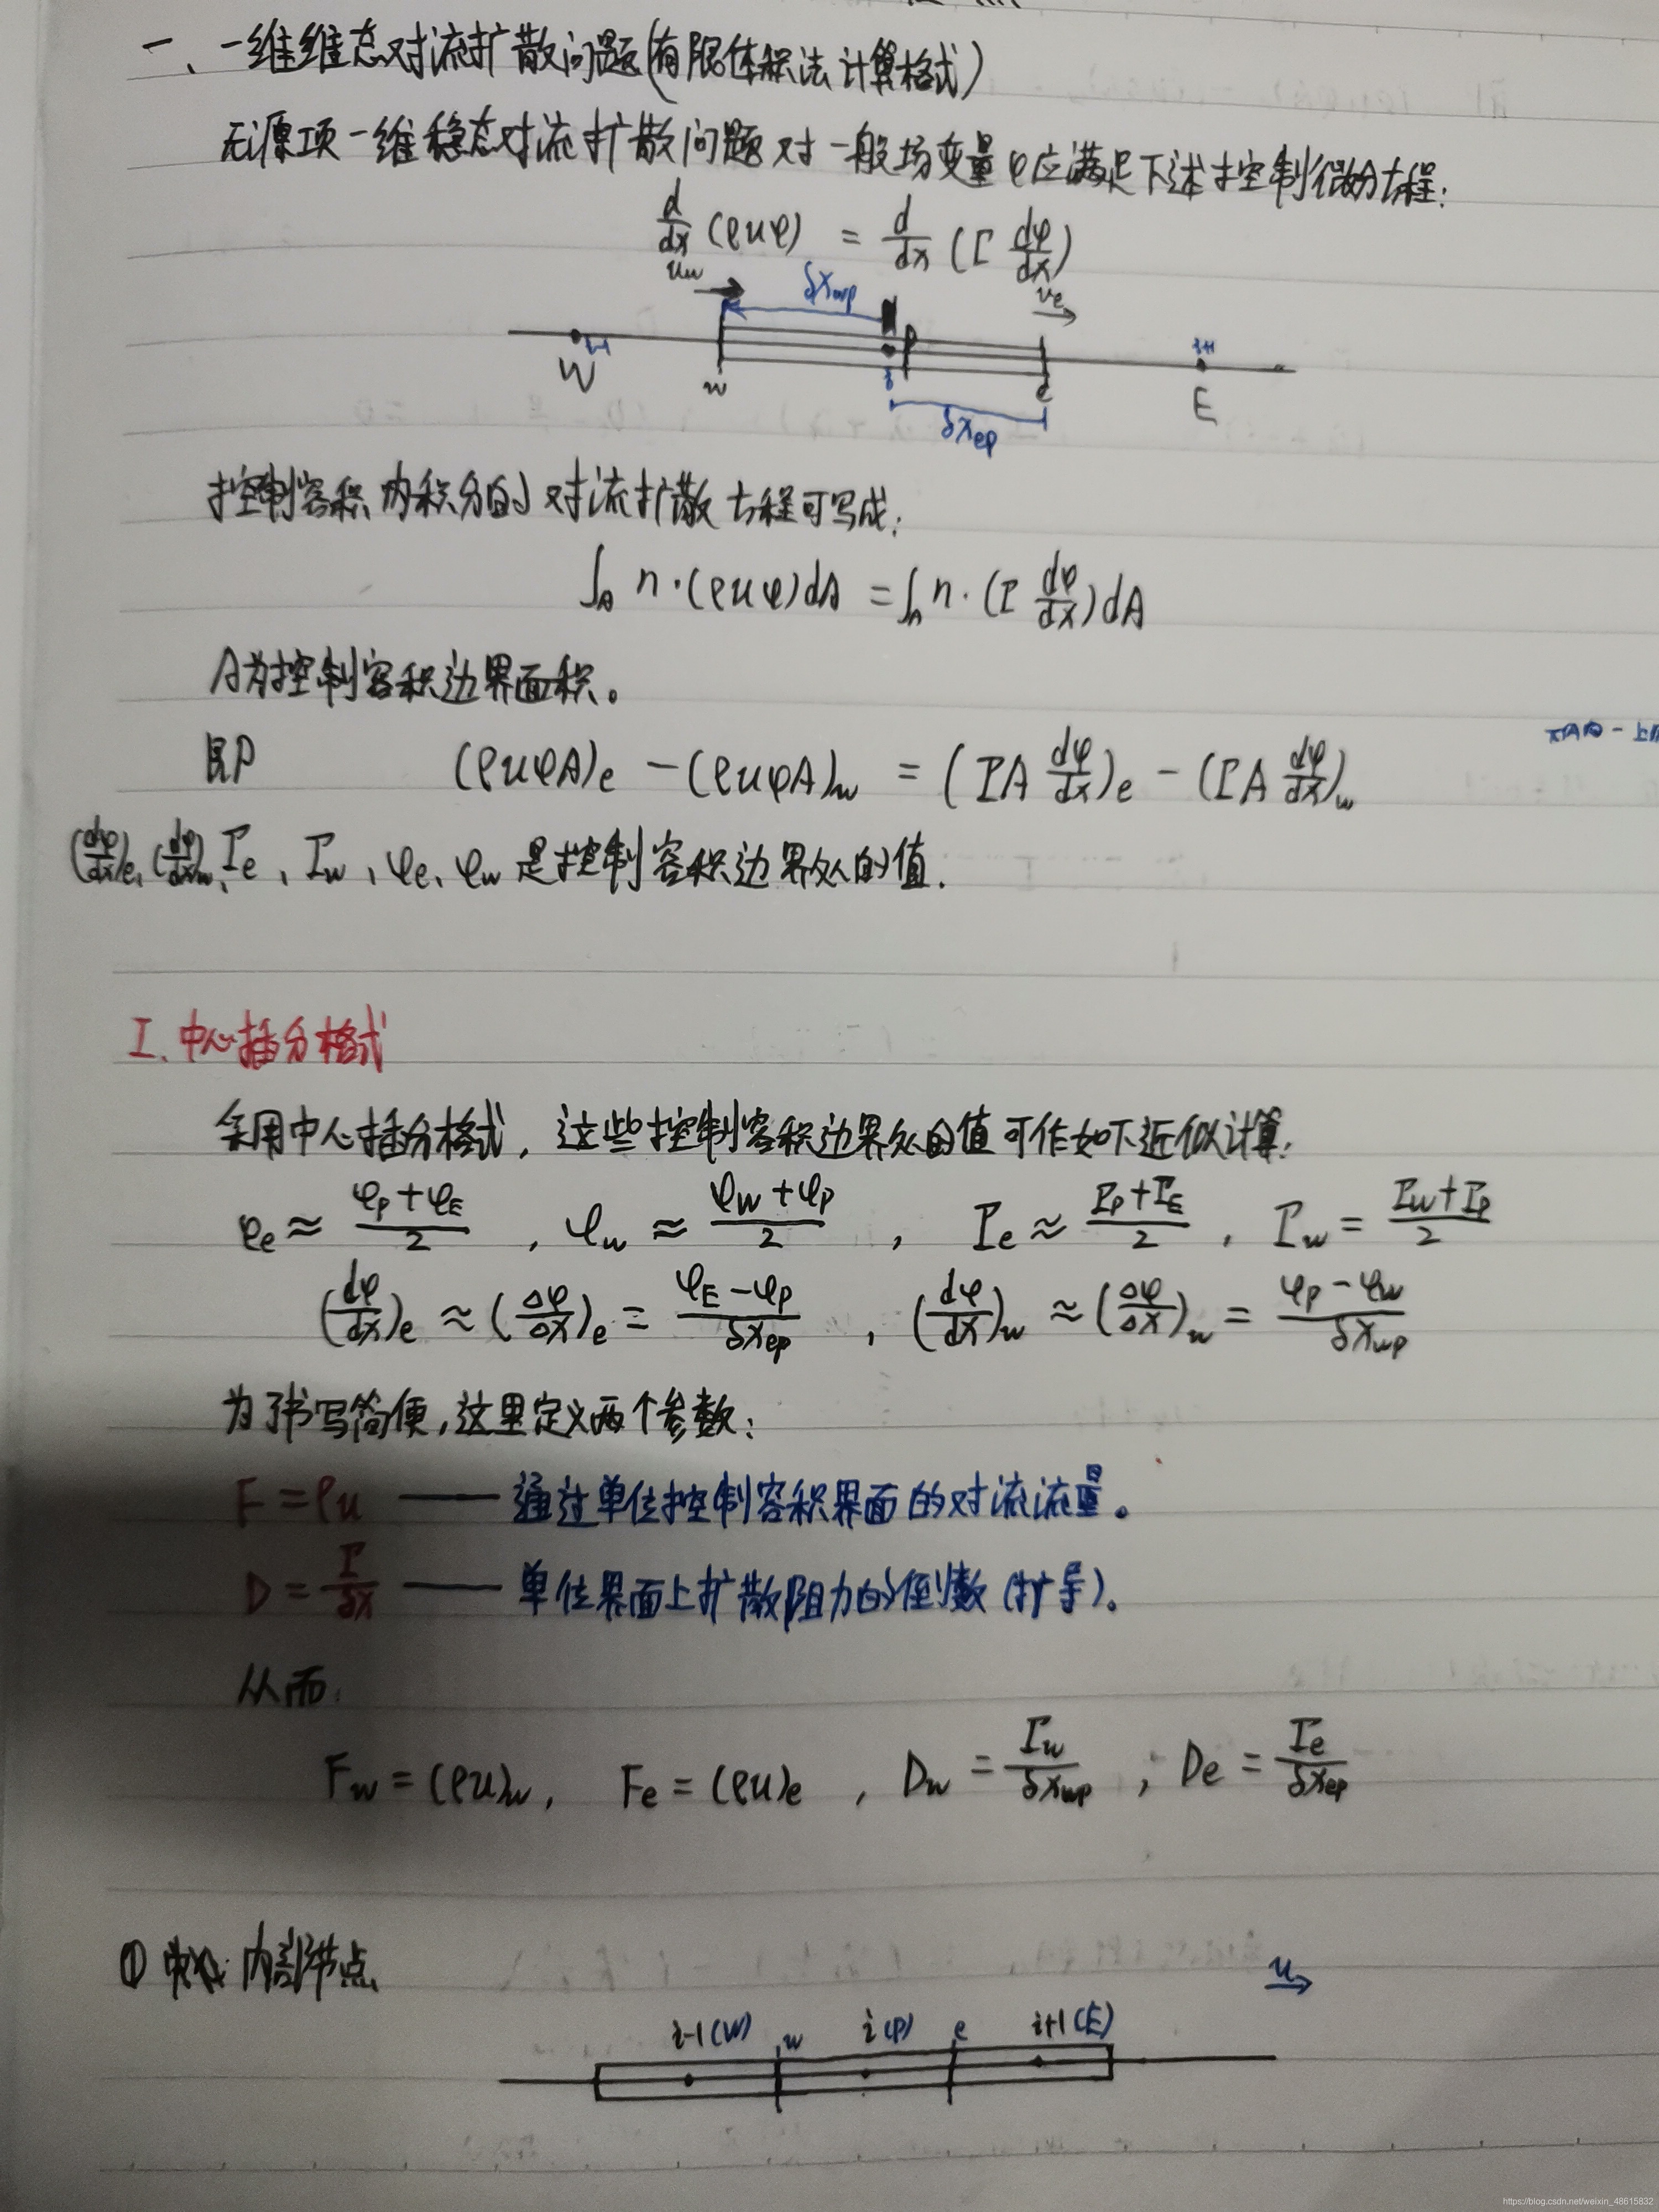 一、一维维态对流扩散问题(有限体积法计算格式)
无源项一维稳态对流扩散问题对一般场变量φ应满足下述控制微分方程:
d/dx (ρuφ) = d/dx (Γ dφ/dx)
u_w δx_wp u_e
W i-1 w P i e i+1 E
δx_ep
控制容积内积分的对流扩散方程可写成:
∫_A n·(ρuφ)dA = ∫_A n·(Γ dφ/dx)dA
A为控制容积边界面积。
即 (ρuφA)_e - (ρuφA)_w = (ΓA dφ/dx)_e - (ΓA dφ/dx)_w
(dφ/dx)_e, (dφ/dx)_w, Γ_e, Γ_w, φ_e, φ_w 是控制容积边界处的值.
I. 中心插分格式
采用中心插分格式, 这些控制容积边界处的值可作如下近似计算:
φ_e ≈ (φ_P + φ_E)/2, φ_w ≈ (φ_W + φ_P)/2, Γ_e ≈ (Γ_P + Γ_E)/2, Γ_w = (Γ_W + Γ_P)/2
(dφ/dx)_e ≈ (Δφ/Δx)_e = (φ_E - φ_P)/δx_ep, (dφ/dx)_w ≈ (Δφ/Δx)_w = (φ_P - φ_W)/δx_wp
为了书写简便,这里定义两个参数:
F = ρu —— 通过单位控制容积界面的对流流量。
D = Γ/δx —— 单位界面上扩散阻力的倒数(扩导)。
从而:
F_w = (ρu)_w, F_e = (ρu)_e, D_w = Γ_w/δx_wp; D_e = Γ_e/δx_ep
① 内部节点
u
i-1(W) w i(P) e i+1(E)
https://blog.csdn.net/weixin_48615832